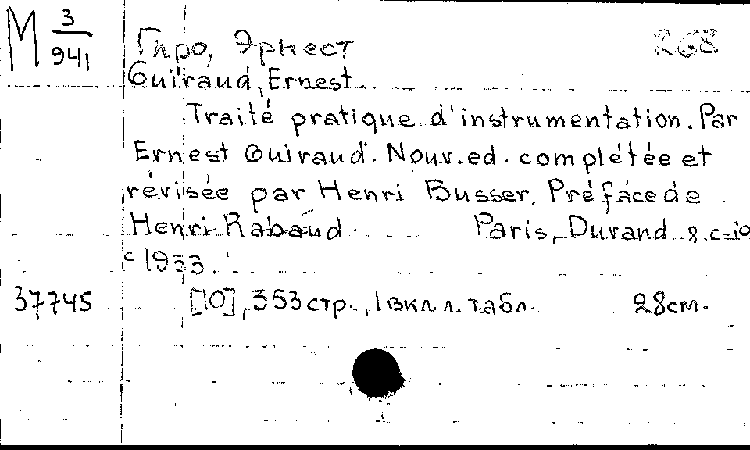 М 3/941
Гиро, Эрнест
268
Guiraud, Ernest
Traité pratique d'instrumentation. Par
Ernest Guiraud. Nouv. ed. complétée et
révisée par Henri Busser. Préface de
Henri Rabaud Paris, Durand & c-ie
c 1933.
37745 [10], 353 стр., 1 вкл. л. табл. 28 см.